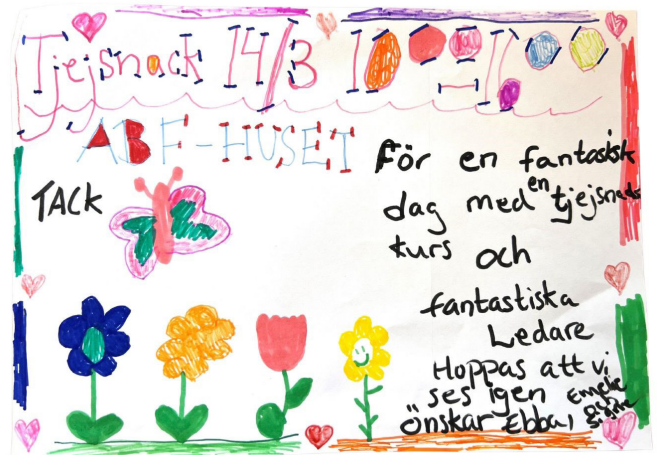 Tjejsnack 14/3 1000-1600
ABF-HUSET
TACK
För en fantastisk
dag med en tjejsnacks
kurs och
fantastiska
Ledare
Hoppas att vi
ses igen
önskar Ebba, Emelie
& Signe